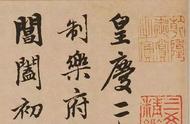 皇慶二
制樂府
閶闔初